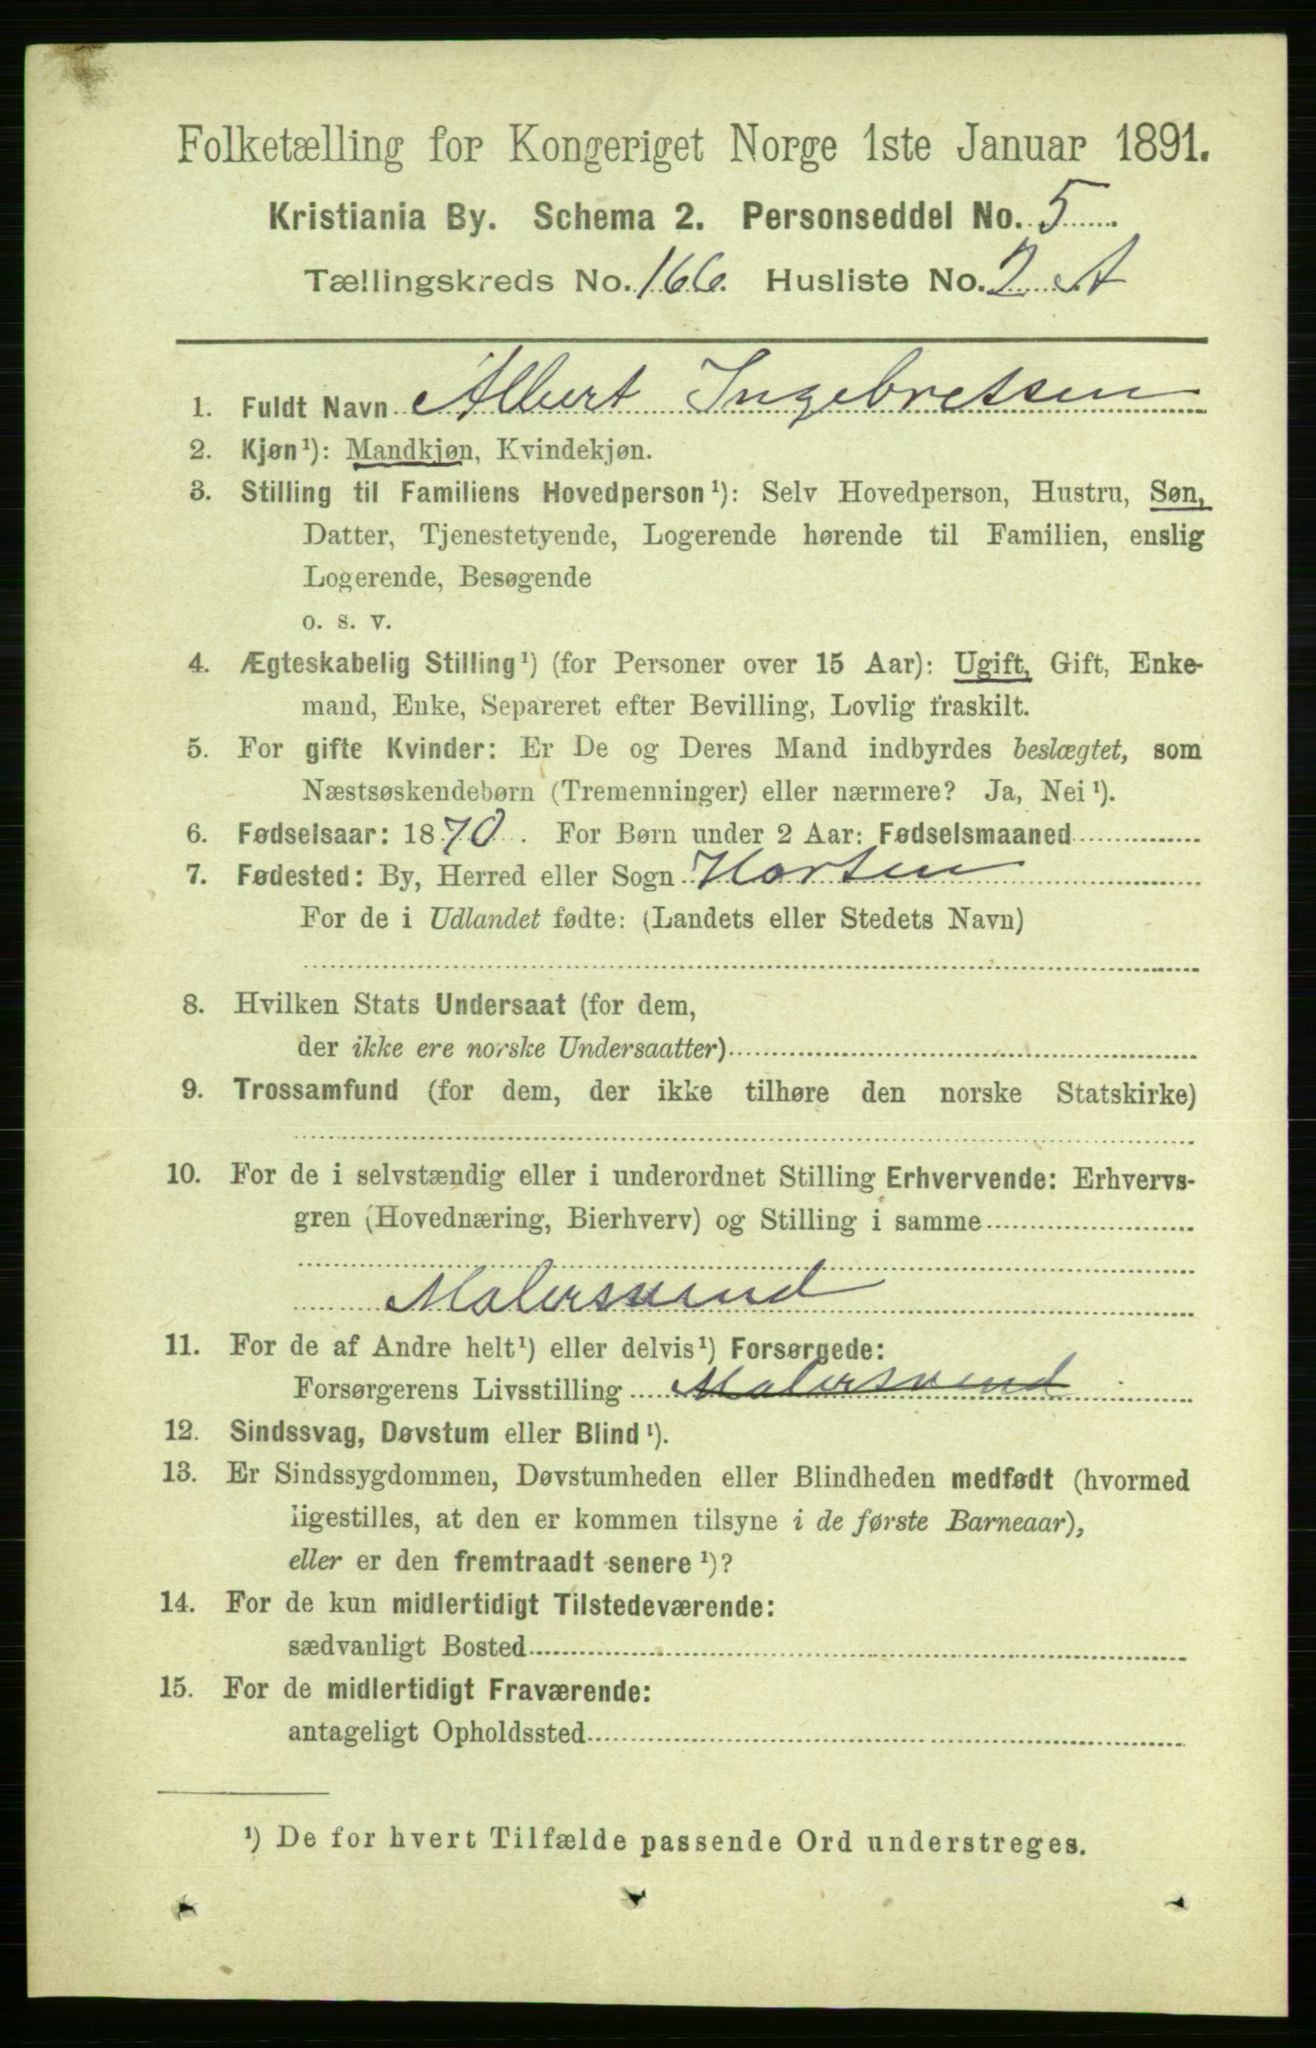 Folketælling for Kongeriget Norge 1ste Januar 1891.
Kristiania By. Schema 2. Personseddel No. 5
Tællingskreds No. 166. Husliste No. 2 A
1. Fuldt Navn Albert Ingebretsen
2. Kjøn¹): Mandkjøn, Kvindekjøn.
3. Stilling til Familiens Hovedperson¹): Selv Hovedperson, Hustru, Søn,
Datter, Tjenestetyende, Logerende hørende til Familien, enslig
Logerende, Besøgende
o. s. v.
4. Ægteskabelig Stilling¹) (for Personer over 15 Aar): Ugift, Gift, Enke-
mand, Enke, Separeret efter Bevilling, Lovlig fraskilt.
5. For gifte Kvinder: Er De og Deres Mand indbyrdes beslægtet, som
Næstsøskendebørn (Tremenninger) eller nærmere? Ja, Nei¹).
6. Fødselsaar: 1870. For Børn under 2 Aar: Fødselsmaaned
7. Fødested: By, Herred eller Sogn Horten
For de i Udlandet fødte: (Landets eller Stedets Navn)
8. Hvilken Stats Undersaat (for dem,
der ikke ere norske Undersaatter)
9. Trossamfund (for dem, der ikke tilhøre den norske Statskirke)
10. For de i selvstændig eller i underordnet Stilling Erhvervende: Erhvervs-
gren (Hovednæring, Bierhverv) og Stilling i samme
Malersvend
11. For de af Andre helt¹) eller delvis¹) Forsørgede:
Forsørgerens Livsstilling Malersvend
12. Sindssvag, Døvstum eller Blind¹).
13. Er Sindssygdommen, Døvstumheden eller Blindheden medfødt (hvormed
ligestilles, at den er kommen tilsyne i de første Barneaar),
eller er den fremtraadt senere¹)?
14. For de kun midlertidigt Tilstedeværende:
sædvanligt Bosted
15. For de midlertidigt Fraværende:
antageligt Opholdssted
¹) De for hvert Tilfælde passende Ord understreges.